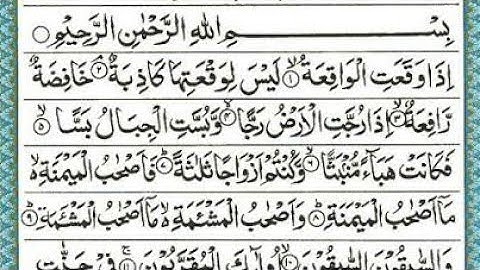 بِسْــــــــــمِ اللهِ الرَّحْمٰنِ الرَّحِيْمِ ○
اِذَا وَقَعَتِ الْوَاقِعَةُ ۙ﴿۱﴾ لَيْسَ لِوَقْعَتِهَا كَاذِبَةٌ ۘ﴿۲﴾ خَافِضَةٌ
رَّافِعَةٌ ۙ﴿۳﴾ اِذَا رُجَّتِ الْاَرْضُ رَجًّا ۙ﴿۴﴾ وَّبُسَّتِ الْجِبَالُ بَسًّا ۙ﴿۵﴾
فَكَانَتْ هَبَآءً مُّنْۢبَثًّا ۙ﴿۶﴾ وَّكُنْتُمْ اَزْوَاجًا ثَلٰثَةً ؕ﴿۷﴾ فَاَصْحٰبُ الْمَيْمَنَةِ ۙ
مَاۤ اَصْحٰبُ الْمَيْمَنَةِ ؕ﴿۸﴾ وَاَصْحٰبُ الْمَشْـَٔمَةِ ۙ مَاۤ اَصْحٰبُ الْمَشْـَٔمَةِ ؕ﴿۹﴾
وَالسّٰبِقُوْنَ السّٰبِقُوْنَ ۙ﴿۱۰﴾ اُولٰٓئِكَ الْمُقَرَّبُوْنَ ۚ﴿۱۱﴾ فِيْ جَنّٰتِ